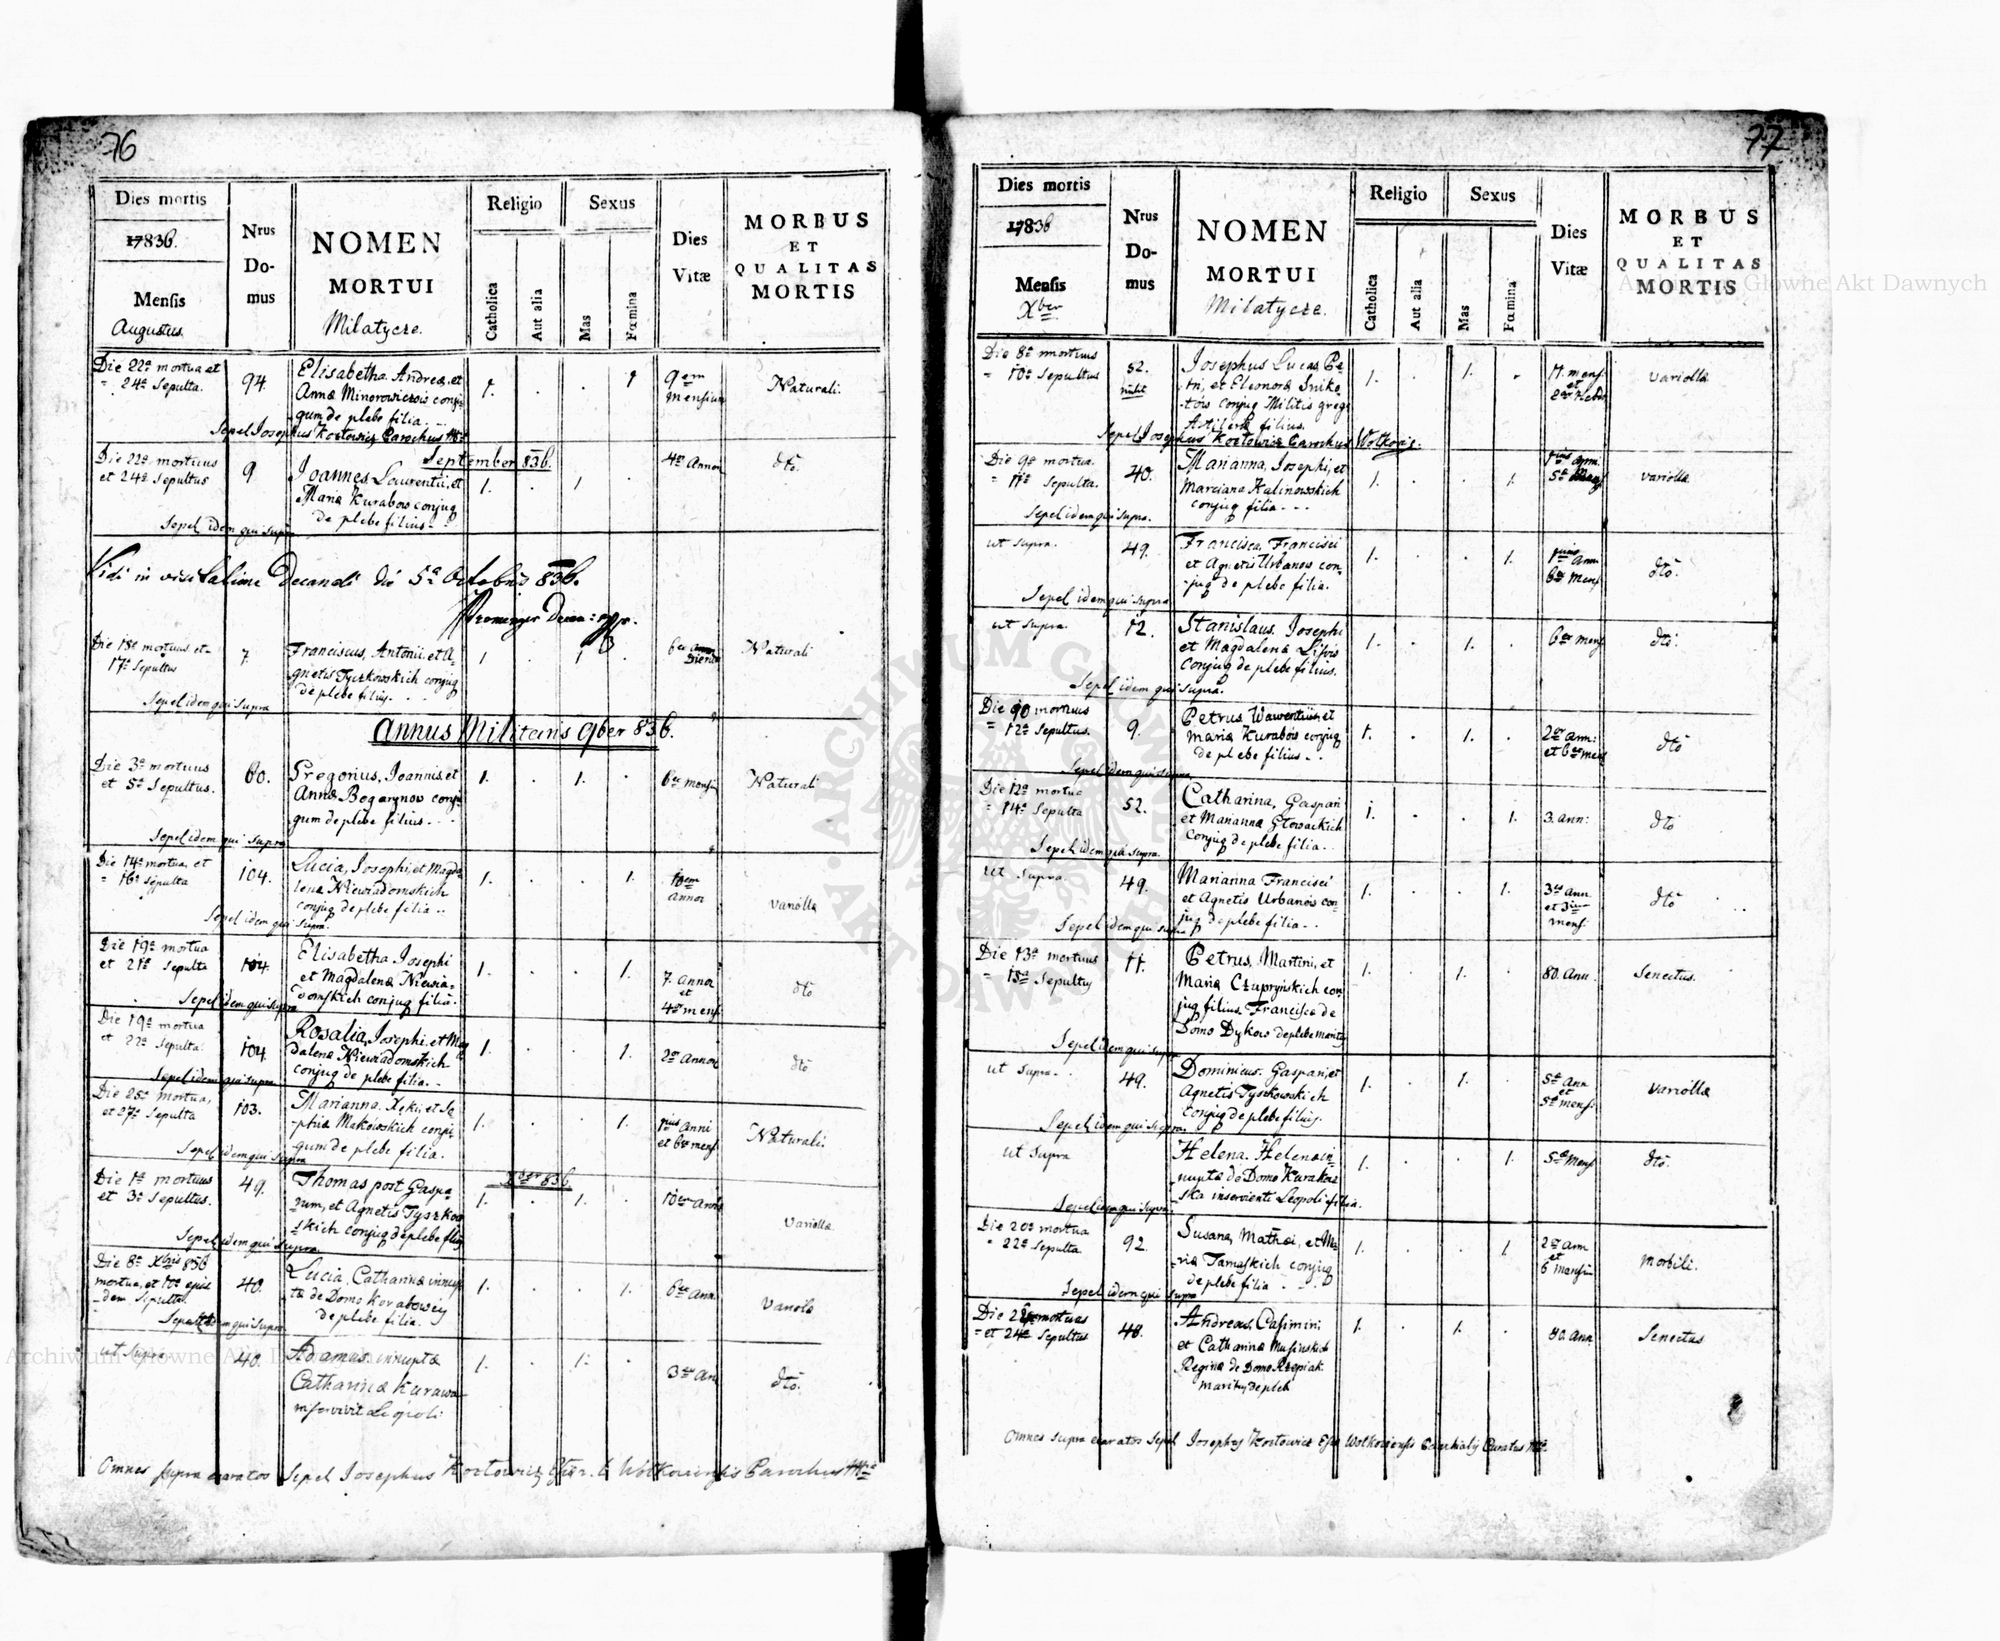 76
Dies mortis
17836.
Mensis
Augustus.
Nrus
Do-
mus
NOMEN
MORTUI
Milatycze.
Religio
Catholica
Aut alia
Sexus
Mas
Fœmina
Dies
Vitæ
MORBUS
ET
QUALITAS
MORTIS
Die 22a mortua et
24a Sepulta.
94.
Elisabetha. Andreæ, et
Annæ Minorowiczois conju-
gum de plebe filia.
1.
1
9em
mensium
Naturali.
Sepel Josephus Kortowicz Parochus
September 836.
Die 22a mortuus
et 24a Sepultus
9
Joannes Laurentii, et
Mariæ Kurabow conjug
de plebe filius
1.
1
4or Annor
dtõ.
Sepel idem qui supra
Vidi in visitatione Decanali die 5a Octobris 836.
Die 18a mortuus et
17a Sepultus
7.
Franciscus, Antonii, et A-
gnetis Tyczkowskich conjug
de plebe filius.
1
1
Naturali
Sepel idem qui supra
Annus Militaris 9ber 836.
Die 3a mortuus
et 5a Sepultus.
60.
Gregorius, Joannis, et
Annæ Bogarynow conju
gum de plebe filius.
1.
1.
6ex mensiu
Naturali
Sepel idem qui supra
Die 14a mortua, et
16a sepulta
104.
Lucia, Josephi, et Magda
lenæ Niewiadomskich
conjug de plebe filia
1.
1.
10em
annor
variolla
Sepel idem qui supra.
Die 19a mortua
et 21a Sepulta
104.
Elisabetha Josephi
et Magdalenæ Niewia-
domskich conjug filia.
1.
1.
7. Annor
et
4or mens
dtõ
Sepel idem qui supra
Die 19a mortua
et 22a Sepulta
104
Rosalia, Josephi, et Mag
dalenæ Niewiadomskich
conjug de plebe filia.
1.
1.
2or Annor
dtõ
Sepel idem qui supra
Die 25a mortua,
et 27a Sepulta
103.
Marianna. et So-
phiæ Makowskich conju-
gum de plebe filia.
1.
1.
1ius Anni
et 6ex mens.
Naturali.
Sepel idem qui supra
Xber 836.
Die 1a mortuus
et 3a Sepultus.
49.
Thomas post Gaspa-
rum, et Agnetis Tyszkow
skich conjug de plebe filiu
1.
1.
10em Annor
Variolla
Sepel idem qui supra
Die 8a Xbris 836
mortua, et 10a ejus
dem Sepulta.
40.
Lucia, Catharinæ innup
tæ de Domo
de plebe filia.
1.
1.
6ex Ann.
Variola
Sepel idem qui supra
ut supra
40.
Adamus, innuptæ
Catharinæ
inservivit Leopoli
1.
1.
3um An
dtõ.
Omnes supra exaratos Sepel Josephus Kortowicz Parochus
77
Dies mortis
17836
Mensis
Xber
Nrus
Do-
mus
NOMEN
MORTUI
Milatycze.
Religio
Catholica
Aut alia
Sexus
Mas
Fœmina
Dies
Vitæ
MORBUS
ET
QUALITAS
MORTIS
Die 8a mortuus
10a Sepultus
52.
Josephus Lucas Pe-
tri, et Eleonoræ Snike-
conjug Militis greg
filius.
1.
1.
11. mens.
et
variolla
Sepel Josephus Kortowicz Parochus Wolkow.
Die 9a mortua.
11a Sepulta.
40.
Marianna, Josephi, et
Marciana Kalinowskich
conjug filia
1.
1.
variolla
Sepel idem qui supra.
ut supra.
49.
Francisca, Francisci
et Agnetis Urbanow con-
jug de plebe filia.
1.
1.
1ius Ann
6ex Mens
dtõ.
Sepel idem qui supra
ut supra.
12.
Stanislaus. Josephi
et Magdalenæ
conjug de plebe filius.
1.
1.
6ex mens
dtõ
Sepel idem qui supra.
Die 10 mortuus
12a Sepultus.
9.
Petrus, Wawrentii, et
Mariæ Kurabow conjug
de plebe filius
1.
1.
2or ann:
et 6ex mens
dtõ
Sepel idem qui supra
Die 12a mortua
14a Sepulta
52.
Catharina, Gaspari
et Mariannæ Głowackich
conjug de plebe filia
1.
1.
3. ann:
dtõ
Sepel idem qui supra.
ut supra.
49.
Marianna Francisci
et Agnetis Urbanow con-
jug de plebe filia
1.
1.
3um ann.
et 3um
mens.
dtõ
Sepel idem qui supra
Die 13a mortuus
15a Sepultus
11.
Petrus, Martini, et
Mariæ Czupryńskich con-
jug filius. Franciscæ de
Domo Dykow de plebe maritus
1.
1.
80. Ann.
Senectus.
Sepel idem qui supra
ut supra.
49.
Dominicus. Gaspari, et
Agnetis Tyszkowskich
conjug de plebe filius.
1.
1.
5e Ann
et
5e mens.
variolla
Sepel idem qui supra.
ut supra
Helena. Helenæ in-
nuptæ de Domo
ska inservienti Leopoli filia.
1.
1.
5e Mens
dtõ.
Sepel idem qui supra
Die 20a mortua
22a Sepulta
92.
Susana, Mathæi, et Ma-
riæ Tamaskich conjug
de plebe filia
1.
1
2or ann
et
6 mensiu
Morbili.
Sepel idem qui supra
Die mortuus
et 24a Sepultus
48.
Andreas, Casimiri
et Catharinæ Musinskich
Reginæ de Domo Rzepiak
maritus de pleb
1.
1.
80. Ann
Senectus
Omnes supra exaratos Sepel Josephus Kortowicz
Archiwum Główne Akt Dawnych
ARCHIWUM GŁÓWNE AKT DAWNYCH
Archiwum Główne Akt Dawnych